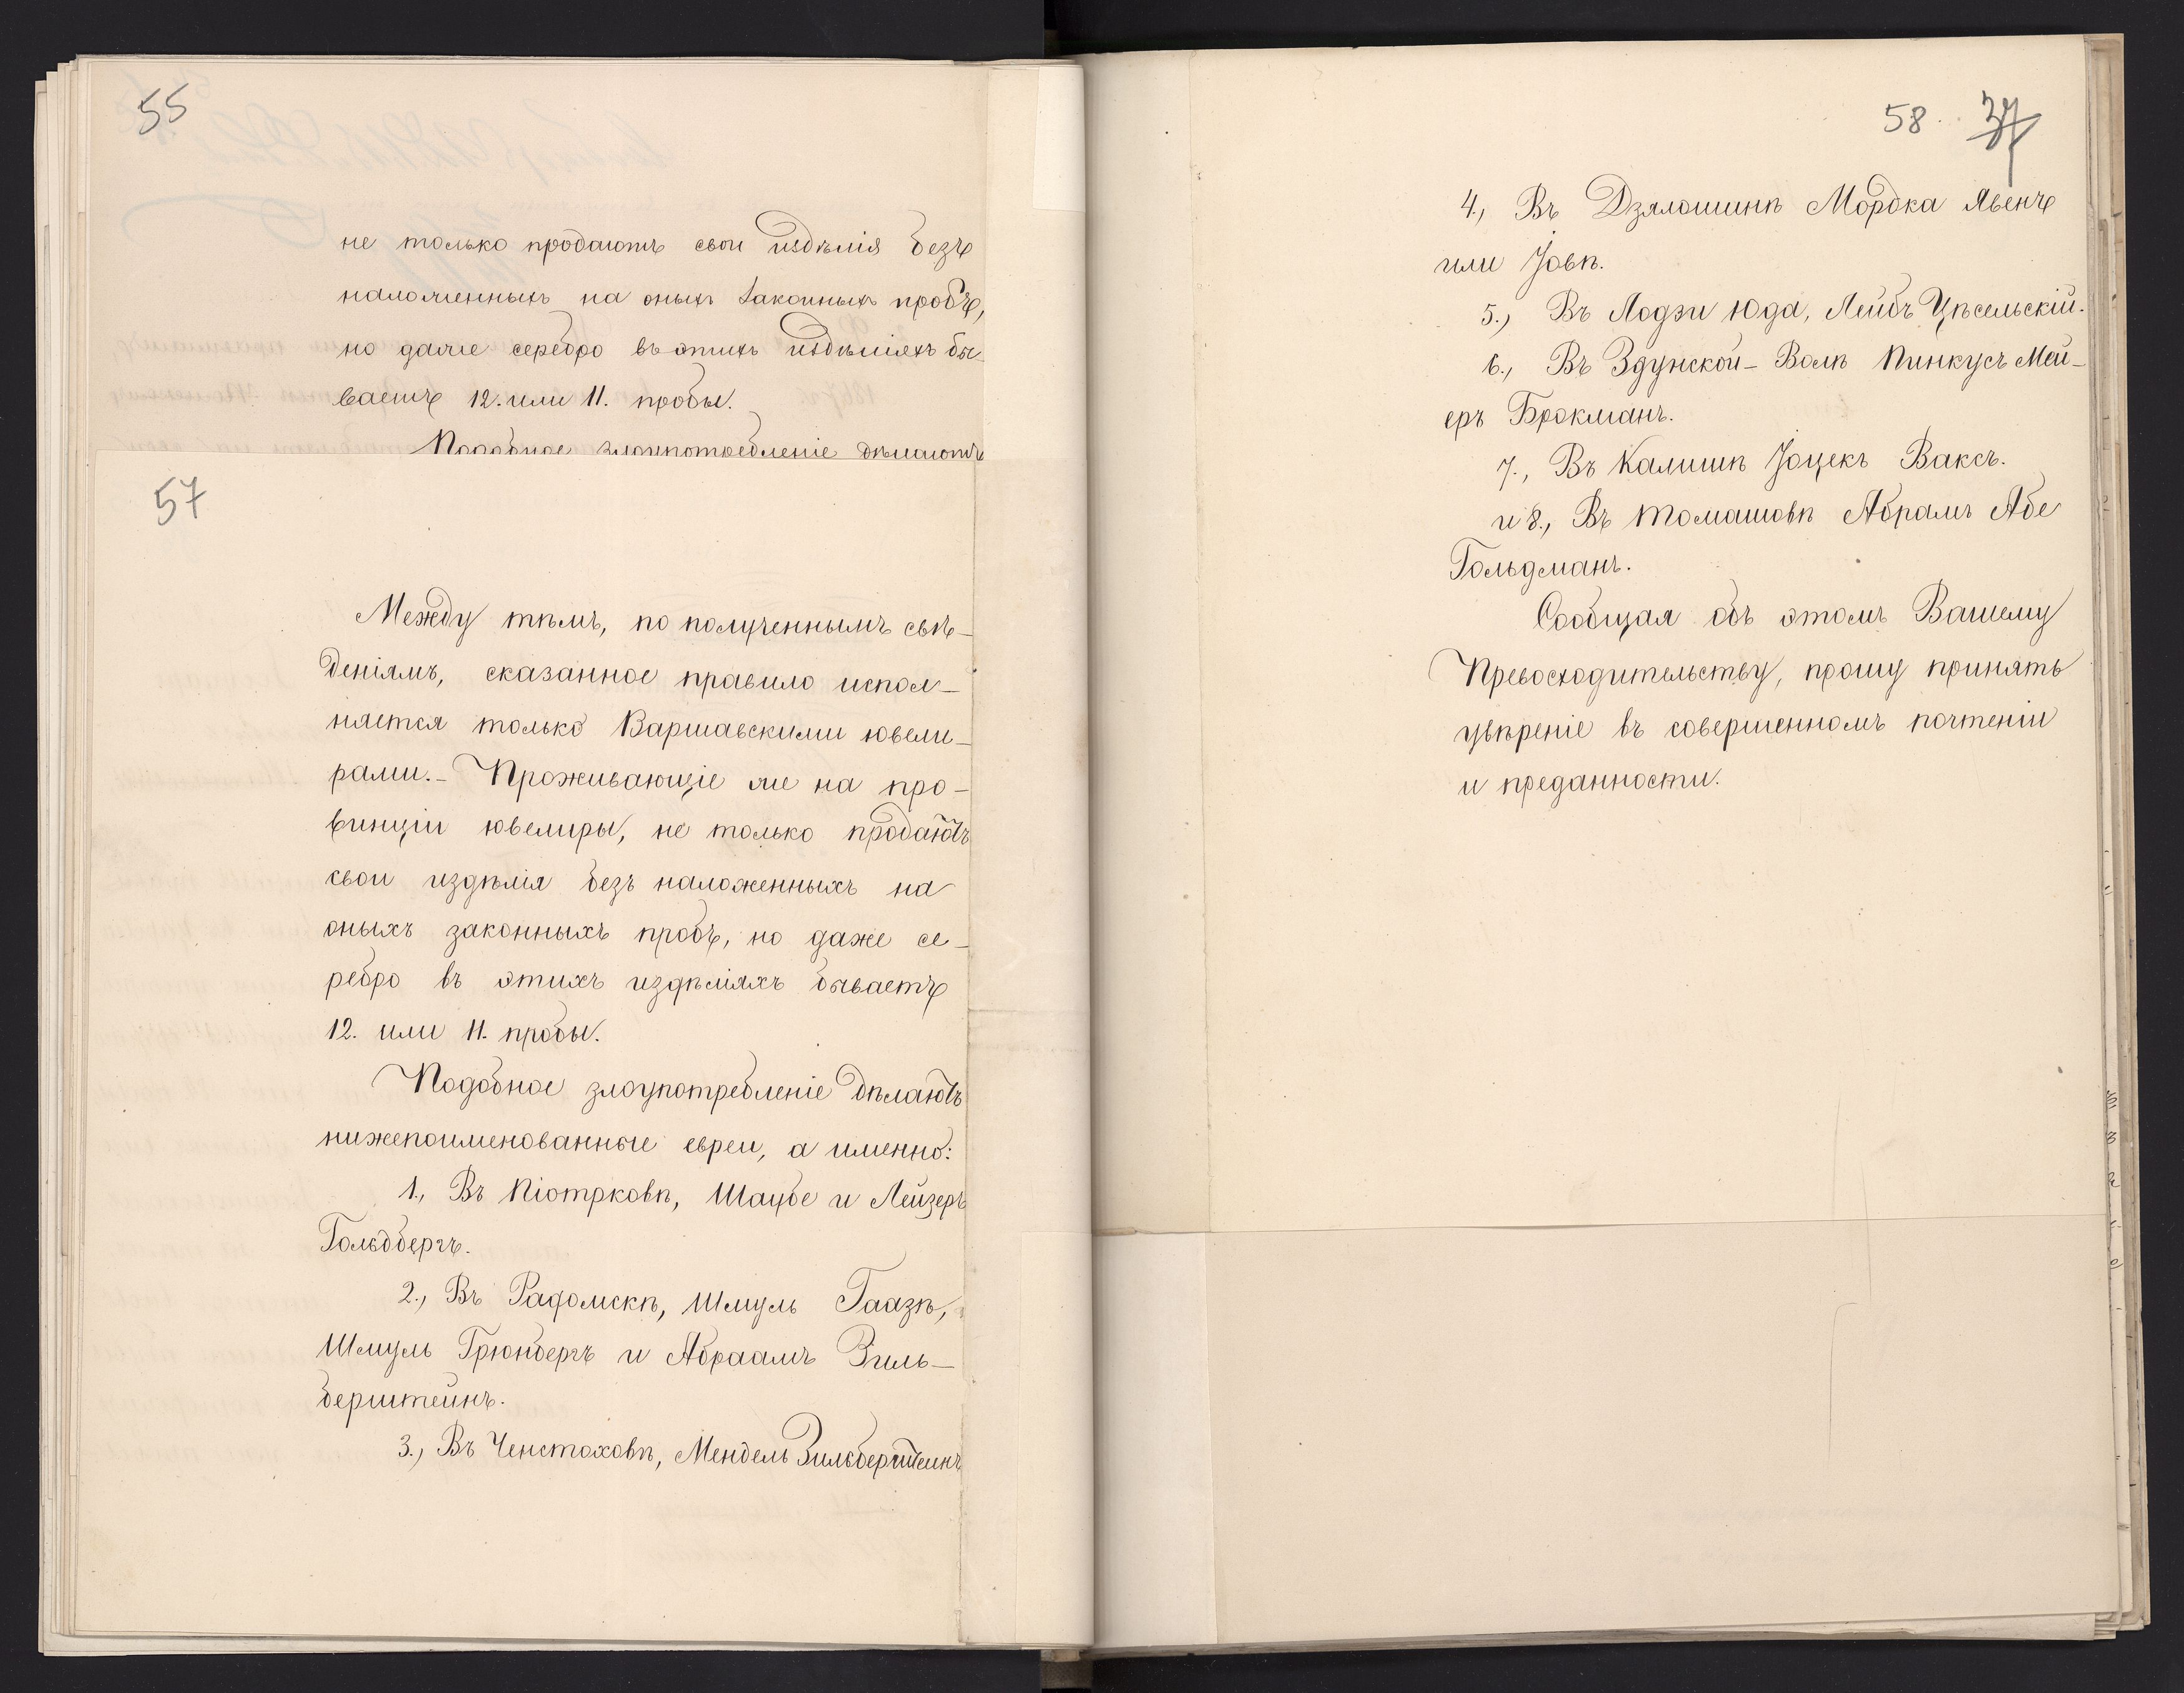 55
не только продаютъ свои издѣлія безъ
наложенныхъ на оныхъ законныхъ пробъ,
но даже серебро въ этихъ издѣліяхъ бы-
ваетъ 12. или 11. пробы.
Подобное злоупотребленіе дѣлаютъ
57
Между тѣмъ, по полученнымъ свѣ-
деніямъ, сказанное правило испол-
няется только Варшавскими ювели-
рами. - Проживающіе же на про-
винціи ювелиры, не только продаютъ
свои издѣлія безъ наложенныхъ на
оныхъ законныхъ пробъ, но даже се-
ребро въ этихъ издѣліяхъ бываетъ
12. или 11. пробы.
Подобное злоупотребленіе дѣлаютъ
нижепоименованные евреи, а именно:
1., Въ Піотрковѣ, Шаубе и Лейзеръ
Гольдбергъ.
2., Въ Радомскѣ, Шмуль Гаазѣ,
Шмуль Грюнбергъ и Абраамъ Зиль-
берштейнъ.
3., Въ Ченстоховѣ, Мендель Зильберштейнъ
58. 37
4., Въ Дзялошинѣ Мордка Явенъ
или Jовѣ.
5., Въ Лодзи Юда, Лейбъ Цѣсельскій.
6., Въ Здунской-Волѣ Пинкусъ Мей-
еръ Брокманъ.
7., Въ Калишѣ Jоцекъ Ваксъ.
и 8., Въ Томашовѣ Абрамъ Абе
Гольдманъ.
Сообщая объ этомъ Вашему
Превосходительству, прошу принять
увѣреніе въ совершенномъ почтеніи
и преданности.